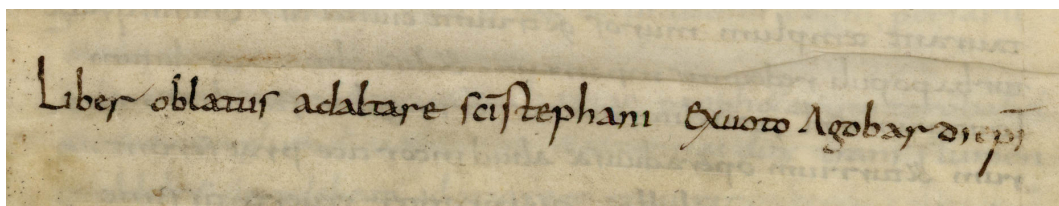 Liber oblatus adaltare scīstephani Exuoto Agobardiepī